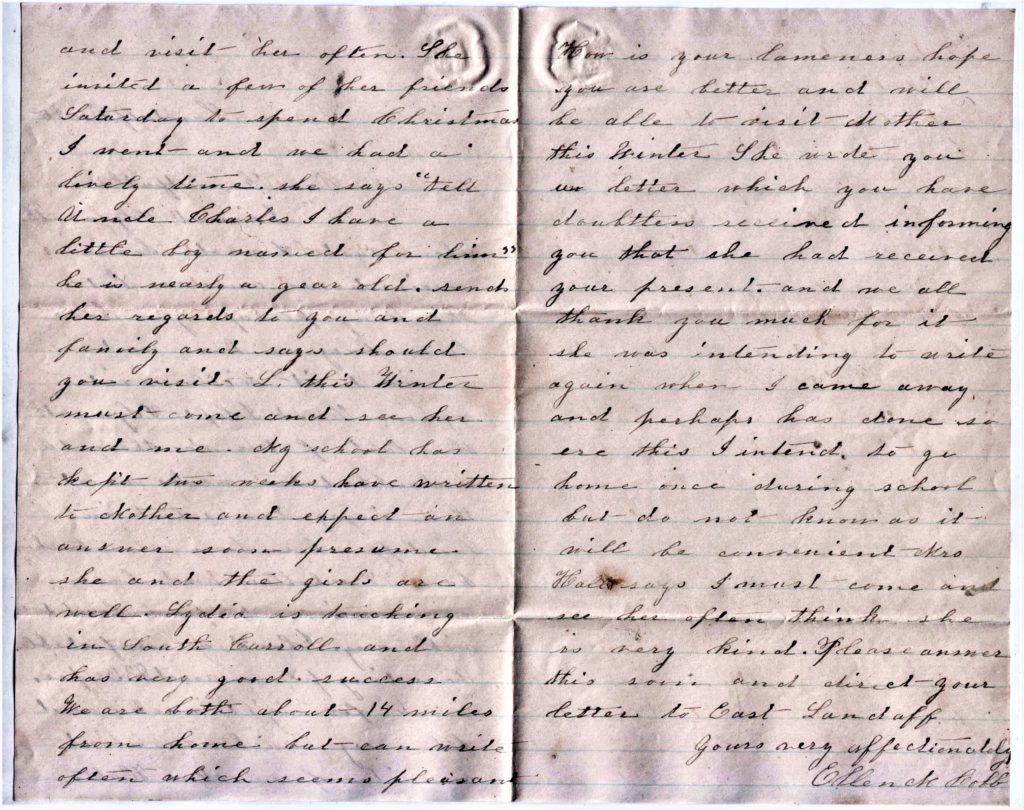 and visit her often. She
invited a few of her friends
Saturday to spend Christmas
I went and we had a
lively time. she says "tell
Uncle Charles I have a
little boy named for him"
he is nearly a year old. sends
her regards to you and
family and says should
you visit L. this Winter
must come and see her
and me. My school has
kept two weeks have written
to Mother and expect an
answer soon presume
she and the girls are
well. Lydia is teaching
in South Carroll and
has very good success
We are both about 14 miles
from home but can write
often which seems pleasant
How is your lameness hope
you are better and will
be able to visit Mother
this Winter She wrote you
letter which you have
doubtless received informing
you that she had received
your present. and we all
thank you much for it
she was intending to write
again when I came away.
and perhaps has done so
ere this I intend. to go
home once during school
but do not know as it
will be convenient Mrs
says I must come and
see her often think she
is very kind. Please answer
this soon and direct your
letter to East Landaff.
Yours very affectionately
Ellen M Cobb